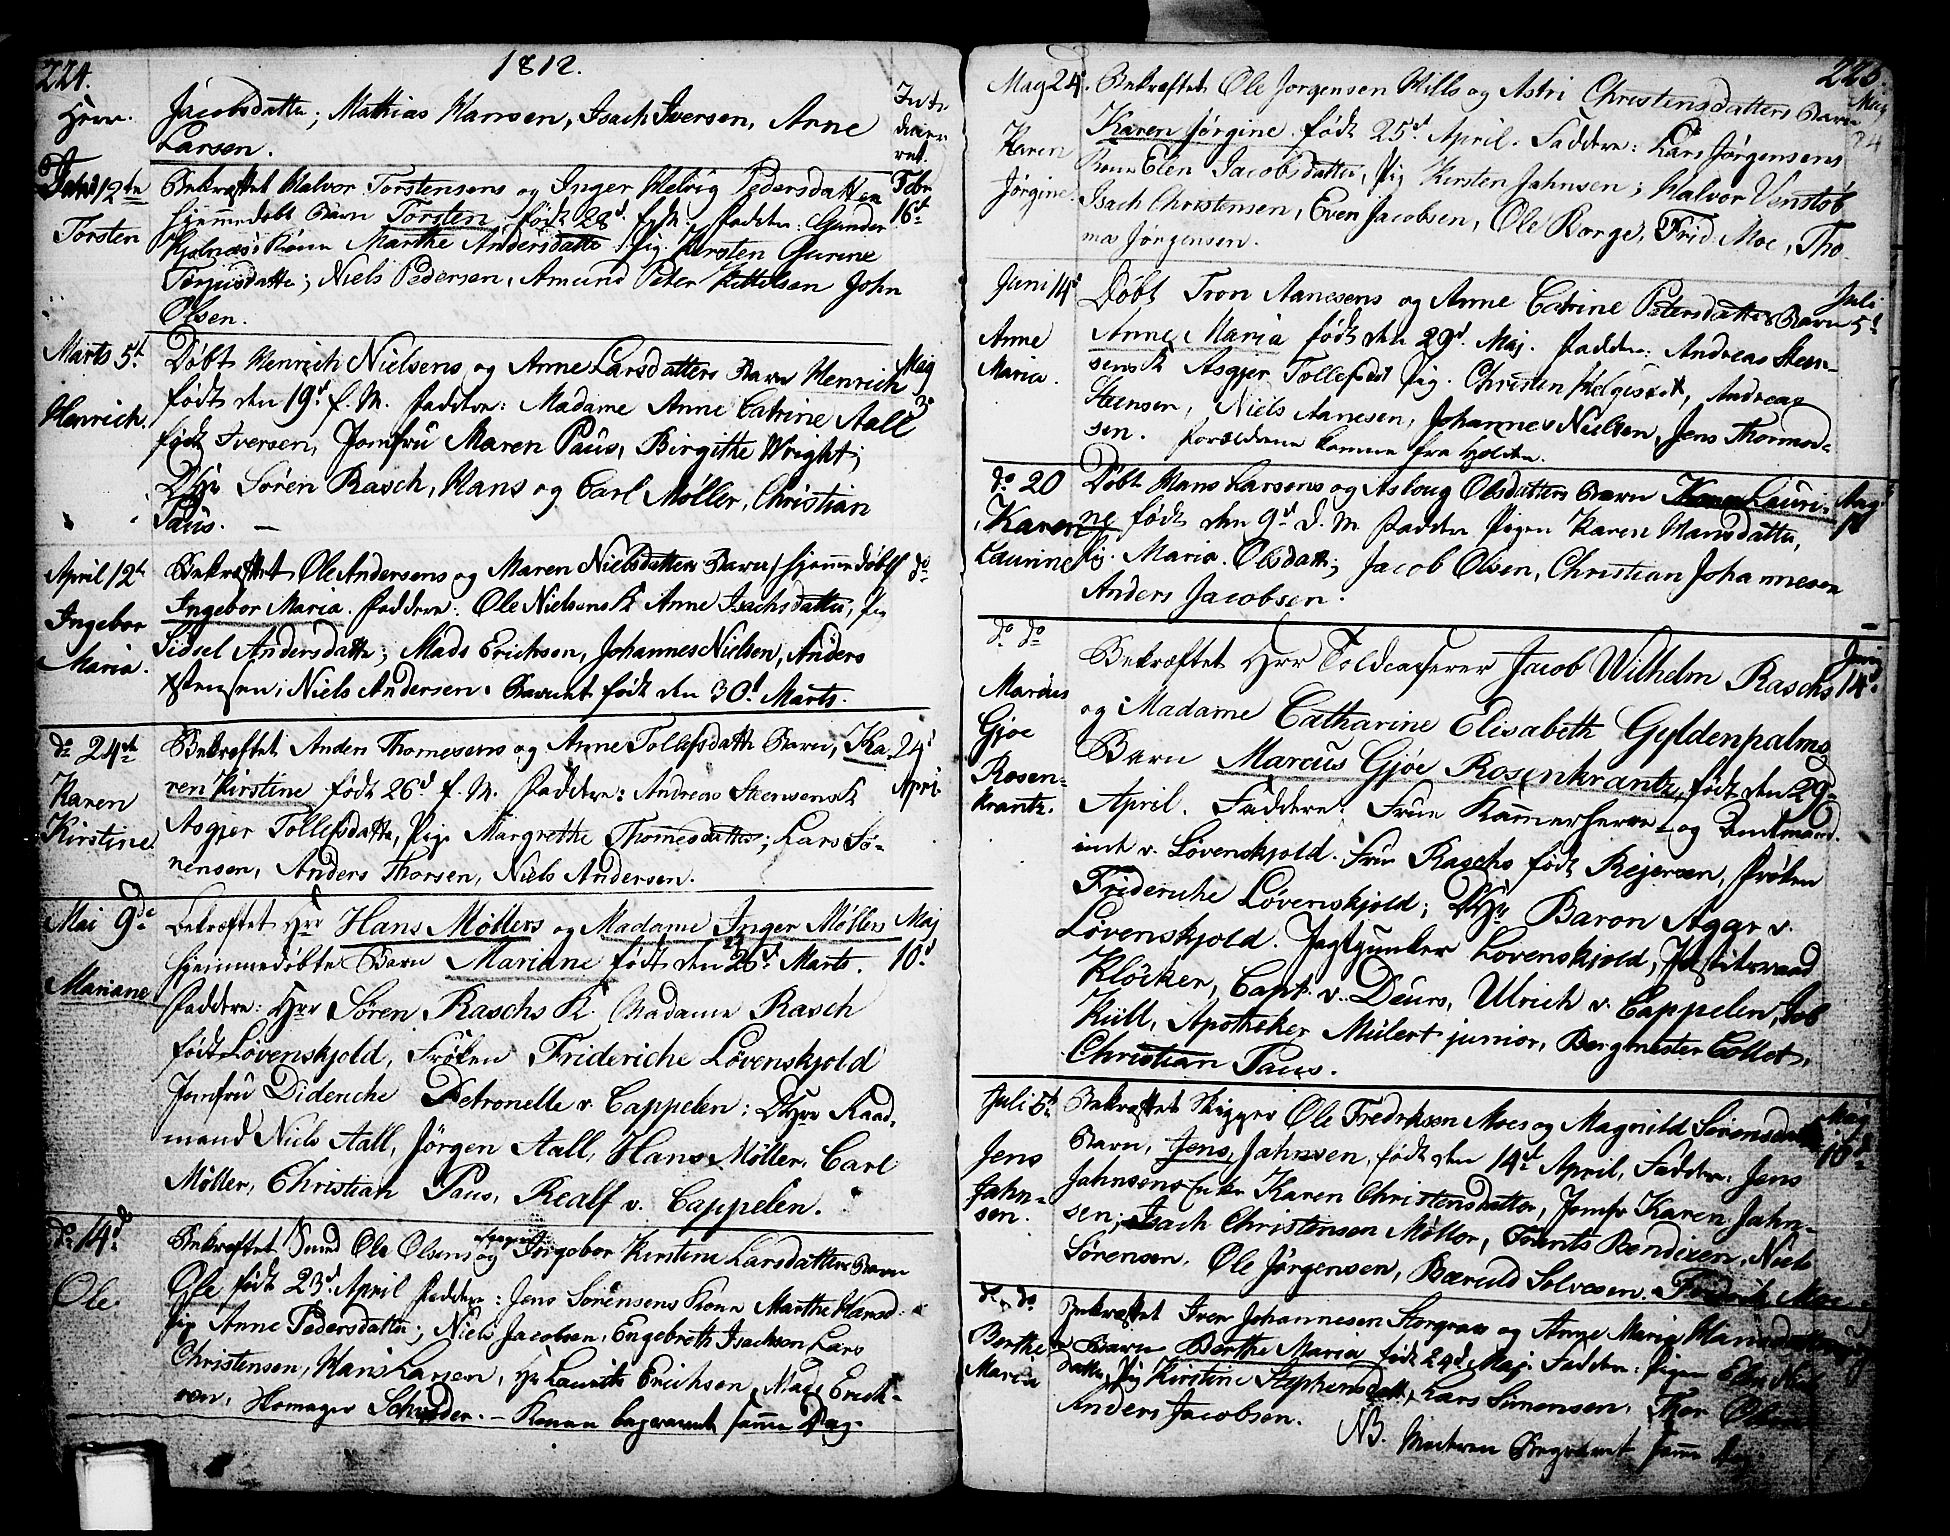 224.
1812.
Jacobsdatter; Mathias Hansen, Isach Iversen, Arne
Larsen.
Intr.
12te
Torsten
Bekræftet Halvor Torstensens og Inger Helvig Pedersdatters
hjemmedøbt Barn Torsten, født 28d f. M. Faddere: Gunder
Kone Marthe Andersdatter Pig. Kirsten Gurine
Torjusdatter; Niels Pedersen, Amund Peter Kittelsen John
Olsen.
Febr
16d
Marts 5t
Henrich
Døbt Henrich Nielsens og Anne Larsdatters Barn Henrich
født den 19d f. M. Faddere: Madame Anne Catrine Aall
født Iversen, Jomfru Maren Paus, Birgithe Wright;
DHr Søren Rasch, Hans og Carl Møller, Christian
Paus. —
Maj
3d
April 12t
Ingebor
Maria.
Bekræftet Ole Andersens og Maren Nielsdatters Barn hjemmedøbt
Ingebor Maria. Faddere: Ole Nielsens K Anne Isachsdatter, Pig
Sidsel Andersdatter; Mads Erichsen, Johannes Nielsen, Anders
Niels Andersen. Barnet født den 30d Marts.
do
do 24de
Karen
Kirstine
Bekræftet Anders Thomesens og Anne Tollefsdatters Barn, Ka-
ren Kirstine født 26d f. M. Faddere: Andreas Steensens K
Asgjer Tollefsdatter, Pige Margrethe Thomesdatter; Lars Sø-
rensen, Anders Thorsen, Niels Andersen.
24d
April
Mai 9de
Mariane
Bekræftet Hrr Hans Møllers og Madame Inger Møllers
hjemmedøbte Barn Mariane født den 26d Marts.
Faddere: Hrr Søren Raschs K. Madame Rasch
født Løvenskjold, Frøken Frideriche Løvenskjold
Jomfru Dideriche Petronelle v. Cappelen; DHrr Raad-
mand Niels Aall, Jørgen Aall, Hans Møller, Carl
Møller, Christian Paus, Realf v. Cappelen.
Maj
10d
do 14d
Ole.
Bekræftet Svend Ole Olsens og Ingebor Kirstine Larsdatters Barn
Ole født 23d April Faddere: Jens Sørensens Kone Marthe Hansd.
Pig Anne Pedersdatter; Niels Jacobsen, Engebreth Isachsen, Lars
Christensen, Hans Larsen, Hr Laurits Erichsen, Mads Erich-
sen, Schrøder. — Konen begravet samme Dag.
225.
Maj 24d
Karen
Jørgine
Bekræftet Ole Jørgensen Hills og Astri Christensdatters Barn
Karen Jørgine født 25d April. Faddere: Lars Jørgensens
Kone Elen Jacobsdatter, Pig Kirsten Jahnsen; Halvor Venstøb
Isach Christensen, Even Jacobsen, Ole Borge, Frid. Moe, Tho-
mas Jørgensen.
Maj
24
Juni 14d
Anne
Maria.
Døbt Tron Aanesens og Anne Catrine Petersdatters Barn
Anne Maria født den 29d Maj. Faddere: Andreas Steen-
sens K Asgjer Tollefsdat Pig. Christen Helgesdat, Andreas
Steensen, Niels Aanesen, Johannes Nielsen, Jens Thormod-
sen. Forældrene komne fra Holden.
Juli
5d
do 20
Karen
Laurine
Døbt Hans Larsens og Asloug Olsdatters Barn Karen Lauri-
ne født den 9d d. M. Faddere Pigen Karen Hansdatter,
Pig. Maria Olsdatter; Jacob Olsen, Christian Johannesen
Anders Jacobsen.
do do
Marcus
Gjøe
Rosen-
krantz.
Bekræftet Hrr Toldcasserer Jacob Wilhelm Raschs
og Madame Catharine Elisabeth Gyldenpalms
Barn Marcus Gjøe Rosenkrantz, født den 29d
April. Faddere: Frue Kammerherre- og
v. Løvenskjold. Frue Raschs født Rejersen, Frøken
Frideriche Løvenskjold; DHr Baron Aggr v.
Løvenskjold. Jagtjunker Løvenskjold, Justitsraad
Kløcker, Capt. v. Deurs, Ulrich v. Cappelen, Job
Kiill, Apotheker Mülert junior, Bergmester Collet,
Christian Paus.
Juni
14d
Juli 5t
Jens
Jahn-
sen.
Bekræftet Skipper Ole Fredriksen Moes og Magnild Sørensdatters
Barn, Jens Jahnsen, født den 14d April, Faddere: Jens
Jahnsens Enke Karen Christensdatter, Jomfr Karen Jahn-
sen; Isach Christensen Møller, Bendixen, Niels
Sørensen, Ole Jørgensen, Bæruld Solvesen, Fredrik Moe
Maj
10d
do do
Berthe
Maria
Bekræftet Iver Johannesen Storgrav og Anne Maria Hansdatters
Barn Berthe Maria født 24d Maj. Faddere: Pigen Ellen Niels-
datter, Pig Kirstine Stephensdatt, Lars Simonsen, Thor Olsen
Anders Jacobsen.
NB. Moderen Begravet samme Dag.